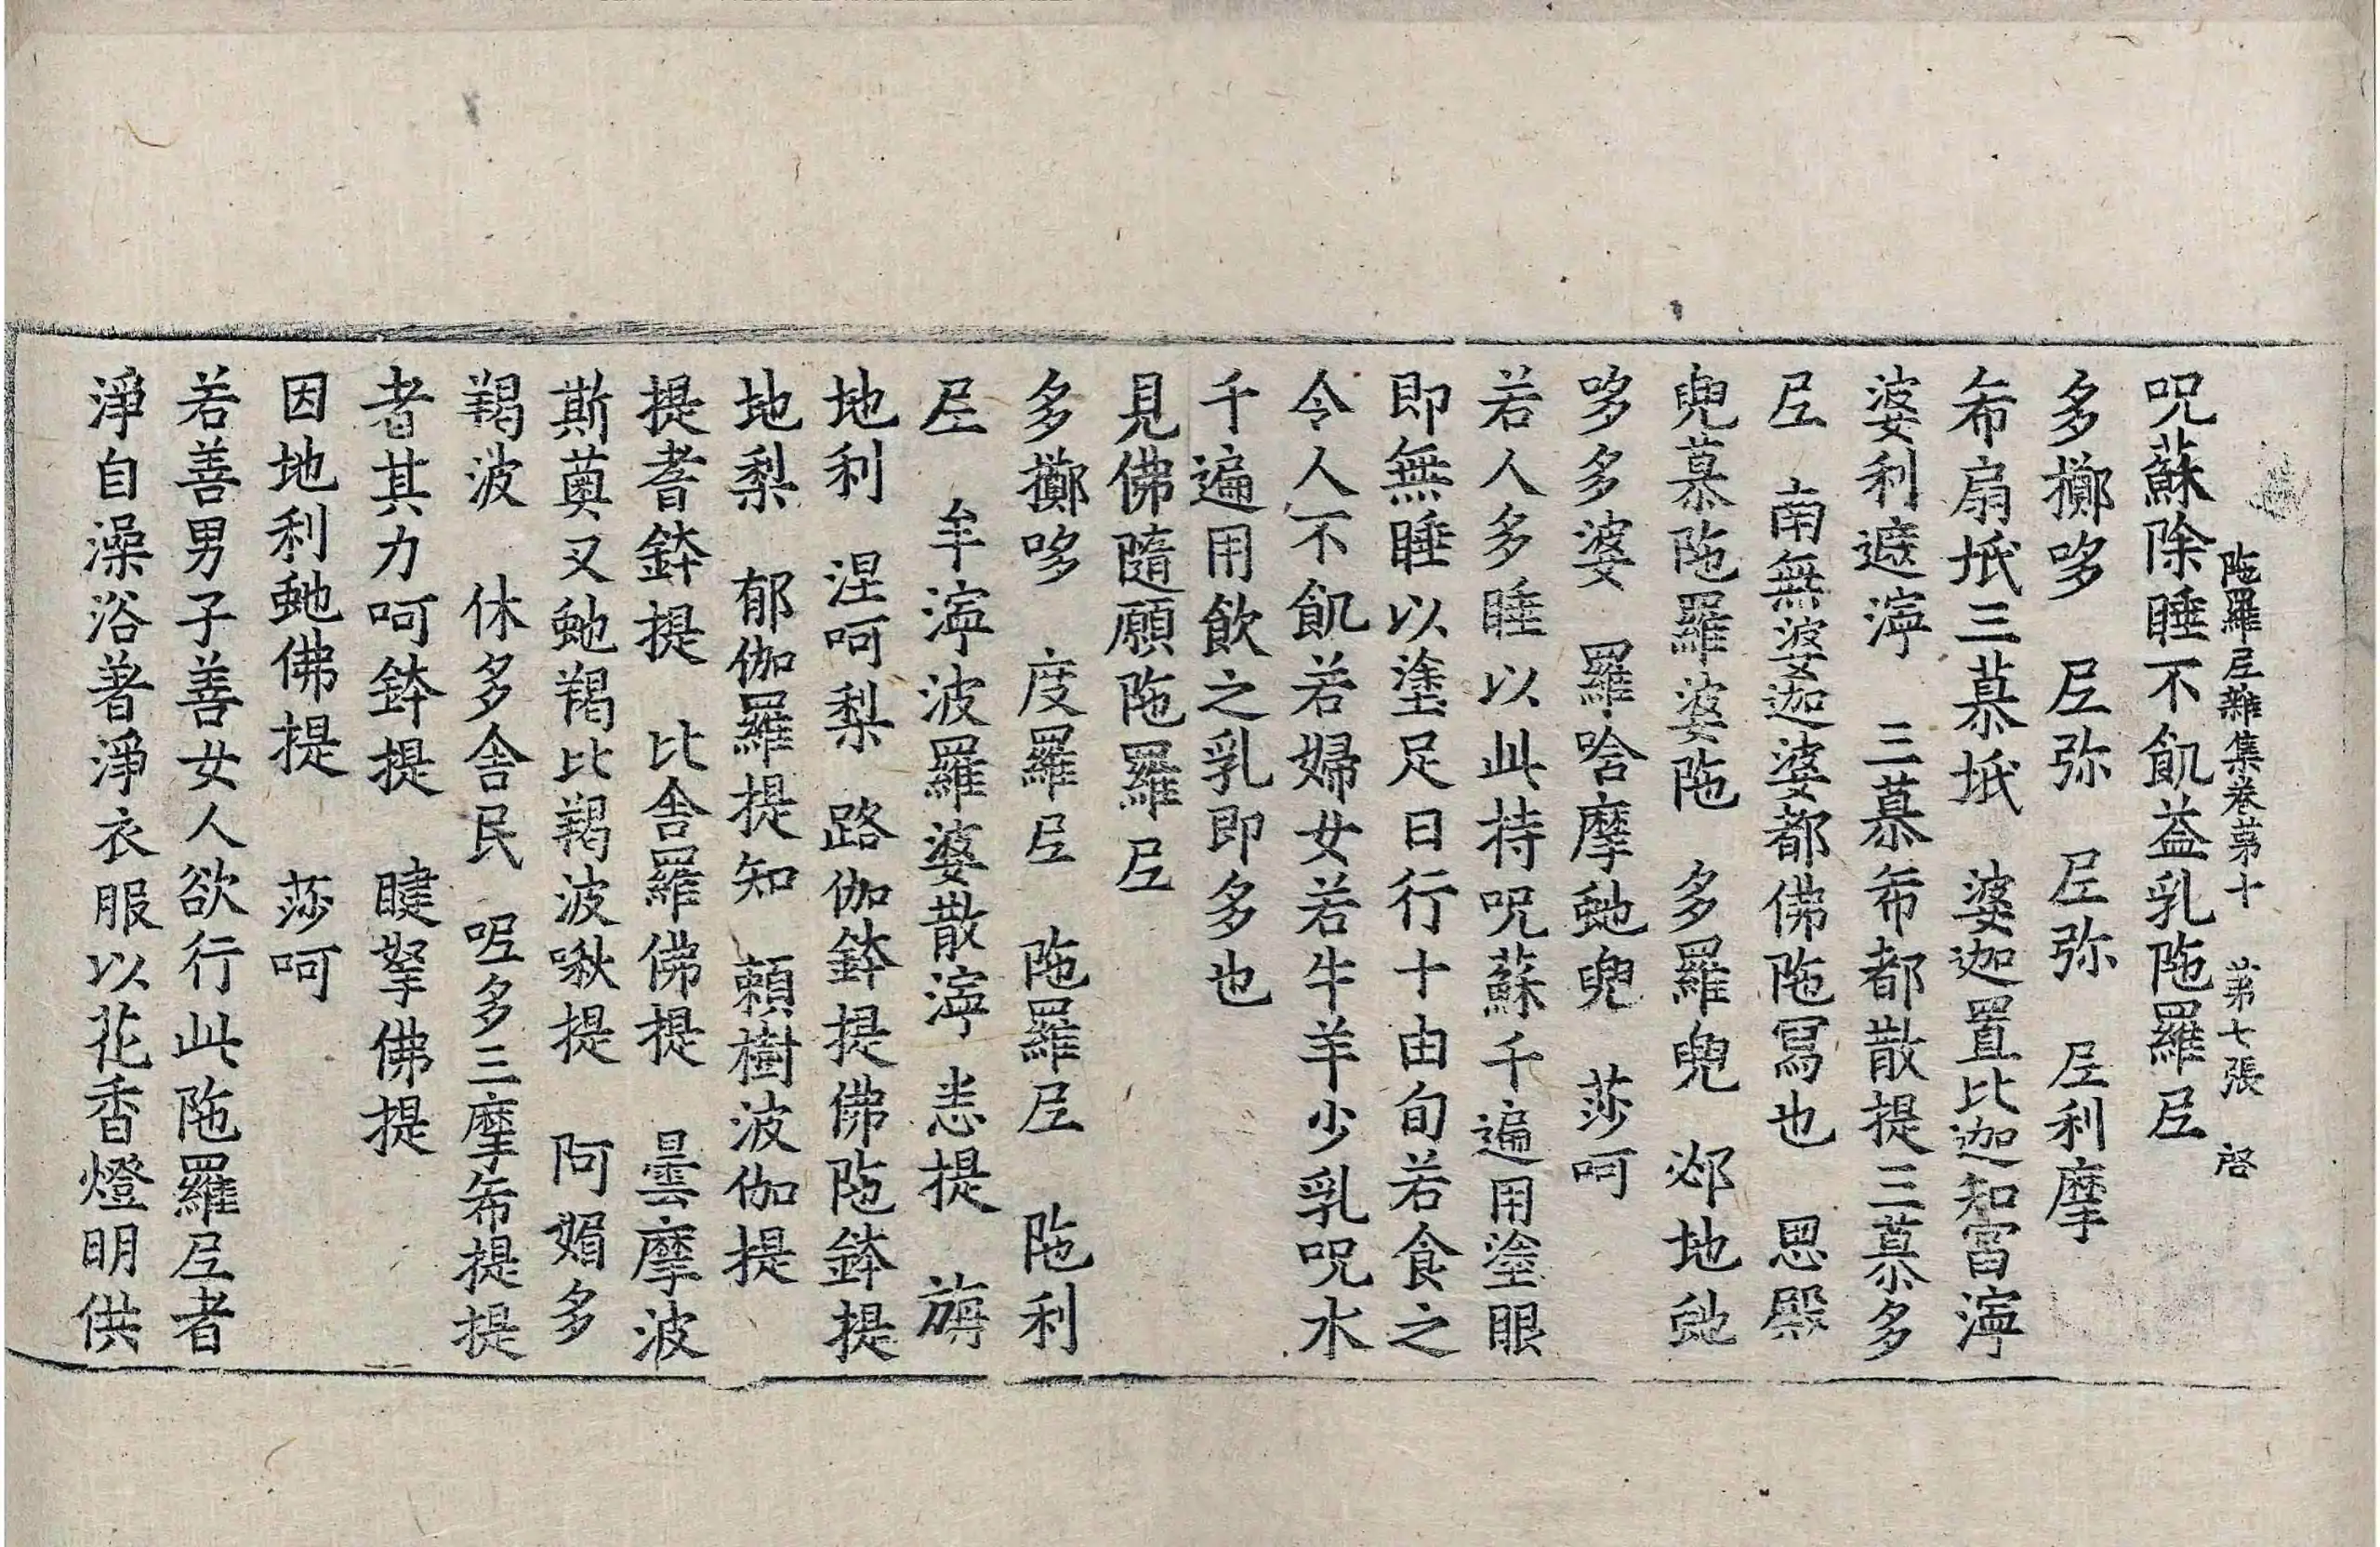 陁羅尼雜集卷第十 第七張 啓
呪蘇除睡不飢益乳陁羅尼
多擲哆 尼弥 尼弥 尼利摩
希扇坻三慕坻 婆迦置比迦知富濘
婆利遮濘 三慕希都散提三慕多
尼 南無婆迦婆都佛陁冩也 思殿
兜慕陁羅婆陁 多羅兜 邲地虵
哆多婆 羅唅摩虵兜 莎呵
若人多睡以此持呪蘇千遍用塗眼
即無睡以塗足日行十由旬若食之
令人不飢若婦女若牛羊少乳呪水
千遍用飲之乳即多也
見佛隨願陁羅尼
多擲哆 度羅尼 陁羅尼 陁利
尼 牟濘波羅婆散濘 悉提 旃
地利 涅呵梨 路伽鉢提佛陁鉢提
地梨 郁伽羅提知 頼樹波伽提
提耆鉢提 比舍羅佛提 曇摩波
斯薁叉虵羯比羯波啾提 阿媚多
羯波 休多舍民 呢多三摩希提提
者其力呵鉢提 睫拏佛提
因地利虵佛提 莎呵
若善男子善女人欲行此陁羅尼者
淨自澡浴著淨衣服以花香燈明供